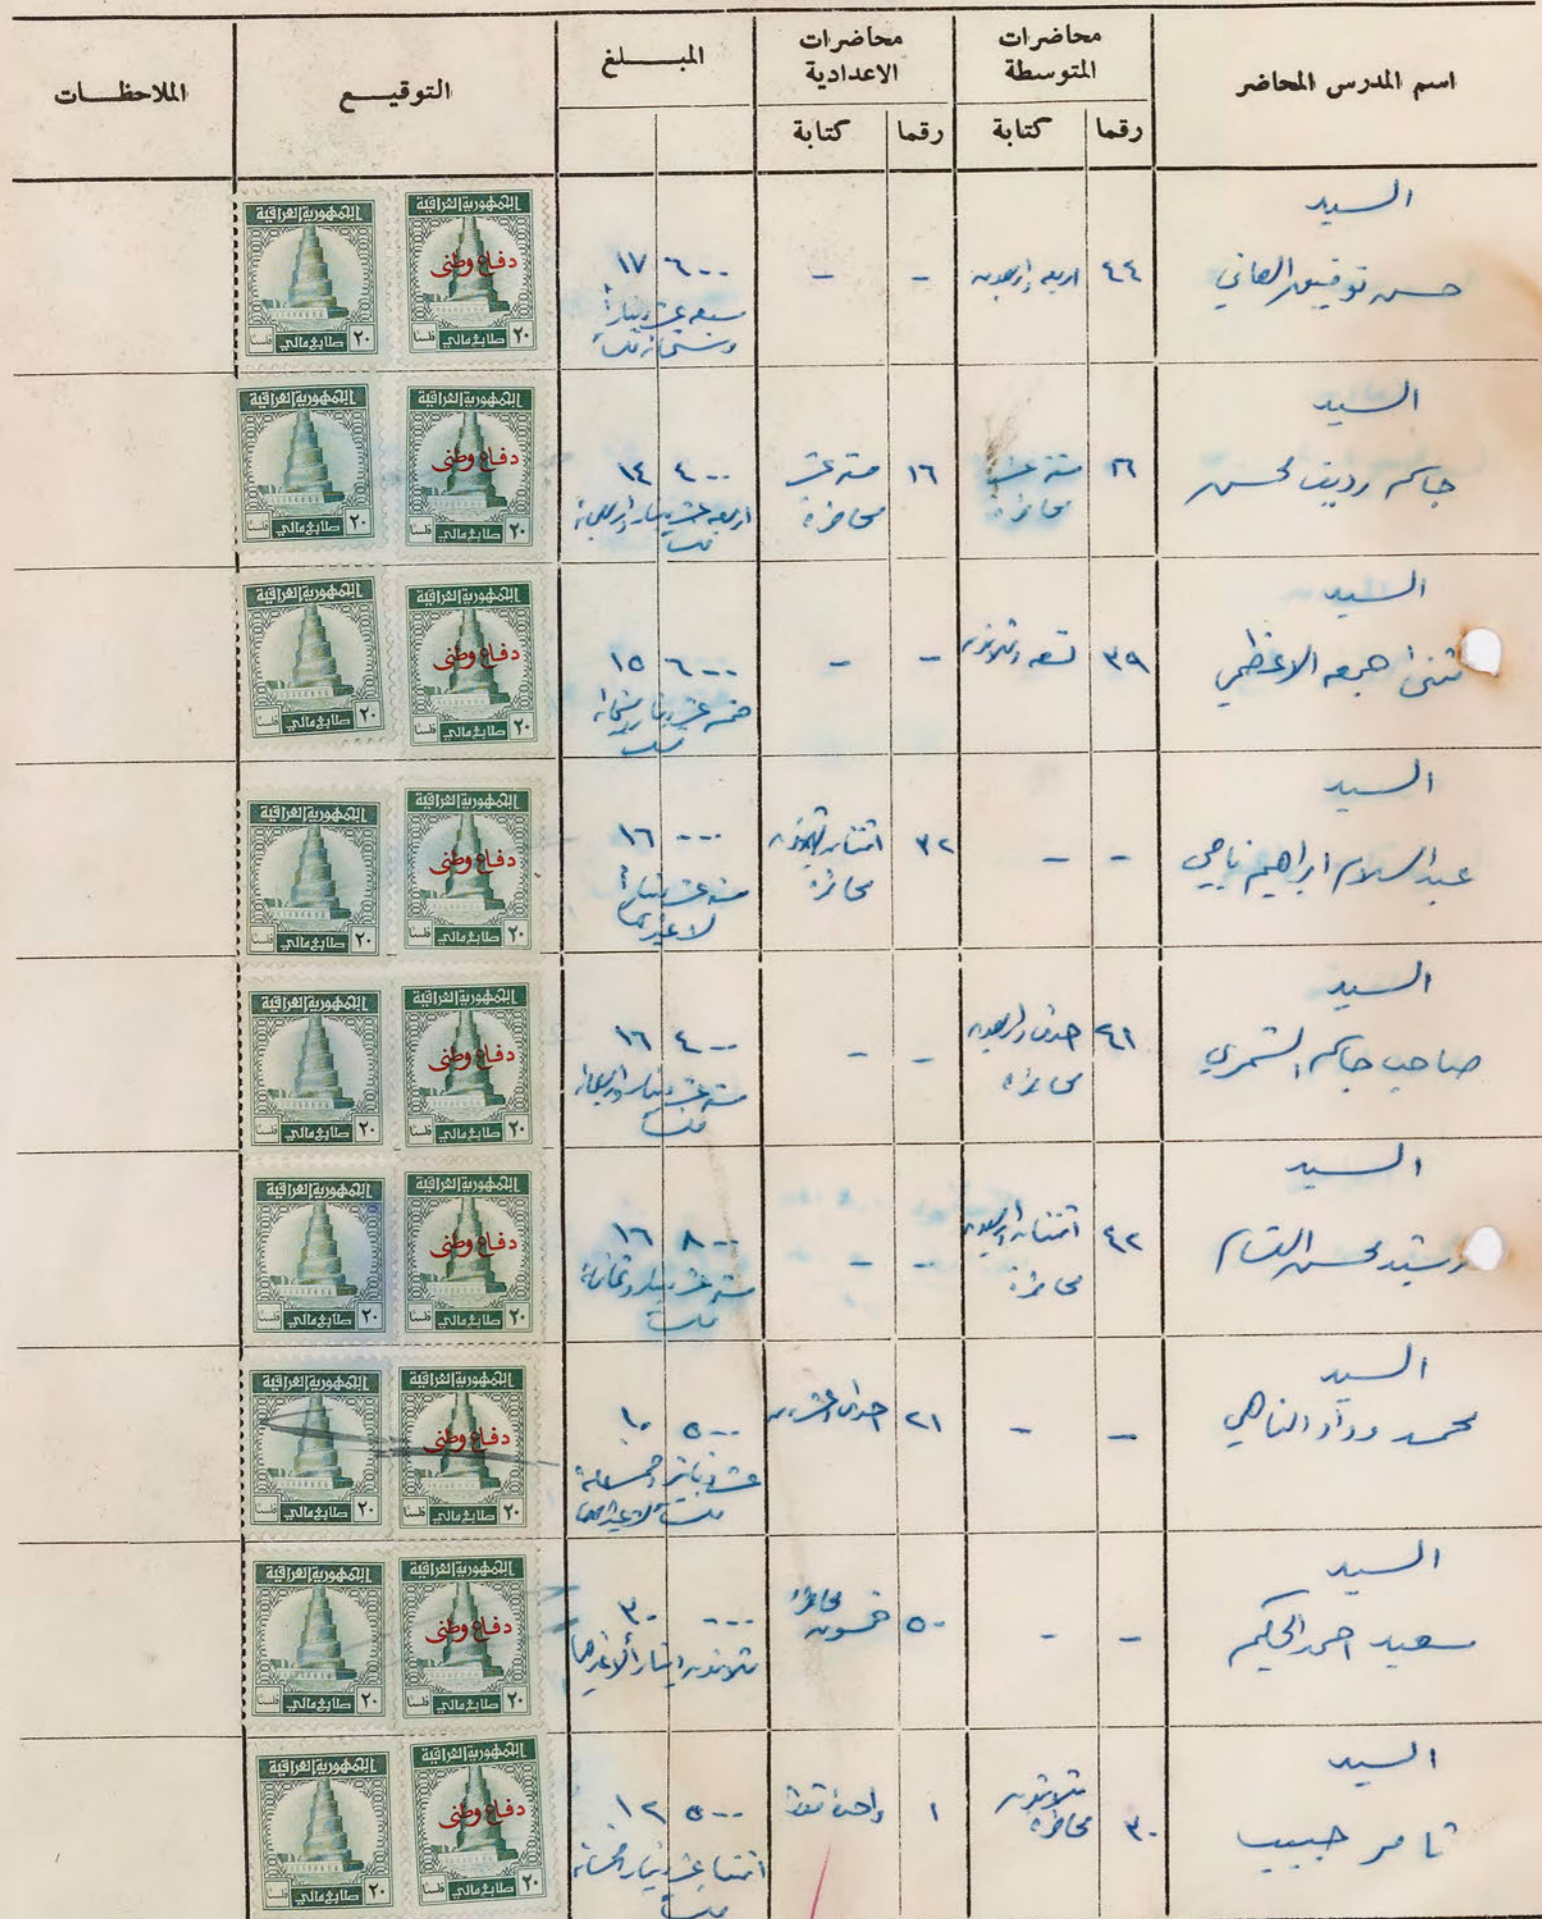 اسم المدرس المحاضر
محاضرات المتوسطة
محاضرات الاعدادية
المبلغ
التوقيع
الملاحظات
رقما
كتابة
رقما
كتابة
السيد
حسن توفيق العاني
٤٤
اربعه واربعون
-
-
٦٠٠
١٧
سبعه عشر دينارا
وستمائة فلسا
الجمهورية العراقية
دفاع وطني
٢٠ طابع مالي فلسا
الجمهورية العراقية
٢٠ طابع مالي فلسا
السيد
جاسم رديف محسن
١٦
ستة عشر
محاضرة
١٦
ستة عشر
محاضرة
٤٠٠
١٤
اربعه عشر دينار واربعمائة
فلسا
الجمهورية العراقية
دفاع وطني
٢٠ طابع مالي فلسا
الجمهورية العراقية
٢٠ طابع مالي فلسا
السيد
جمعه الاعظمي
٣٩
تسعه وثلاثون
-
-
٦٠٠
١٥
خمسه عشر دينار وستمائة
فلسا
الجمهورية العراقية
دفاع وطني
٢٠ طابع مالي فلسا
الجمهورية العراقية
٢٠ طابع مالي فلسا
السيد
عبد السلام ابراهيم ناجي
-
-
٣٢
اثنتان وثلاثون
محاضرة
٠٠٠
١٦
ستة عشر دينارا
لا غيرها
الجمهورية العراقية
دفاع وطني
٢٠ طابع مالي فلسا
الجمهورية العراقية
٢٠ طابع مالي فلسا
السيد
صاحب جاسم الشمري
٤١
احدى واربعون
محاضرة
-
-
٤٠٠
١٦
ستة عشر دينار واربعمائة
فلسا
الجمهورية العراقية
دفاع وطني
٢٠ طابع مالي فلسا
الجمهورية العراقية
٢٠ طابع مالي فلسا
السيد
رشيد محسن القسام
٤٢
اثنتان واربعون
محاضرة
-
-
٨٠٠
١٦
ستة عشر دينار وثمانمائة
فلسا
الجمهورية العراقية
دفاع وطني
٢٠ طابع مالي فلسا
الجمهورية العراقية
٢٠ طابع مالي فلسا
السيد
محمد وداد الناهي
-
-
٢١
احدى وعشرون
٥٠٠
١٠
عشرة دنانير وخمسمائة
فلسا لا غيرها
الجمهورية العراقية
دفاع وطني
٢٠ طابع مالي فلسا
الجمهورية العراقية
٢٠ طابع مالي فلسا
السيد
سعيد احمد الحكيم
-
-
٥٠
خمسون
محاضرة
٠٠٠
٣٠
ثلاثون دينارا لا غيرها
الجمهورية العراقية
دفاع وطني
٢٠ طابع مالي فلسا
الجمهورية العراقية
٢٠ طابع مالي فلسا
السيد
ثامر حبيب
٣٠
ثلاثون
محاضرة
١
واحدة فقط
٥٠٠
١٢
اثنتا عشر دينار وخمسمائة
فلسا
الجمهورية العراقية
دفاع وطني
٢٠ طابع مالي فلسا
الجمهورية العراقية
٢٠ طابع مالي فلسا